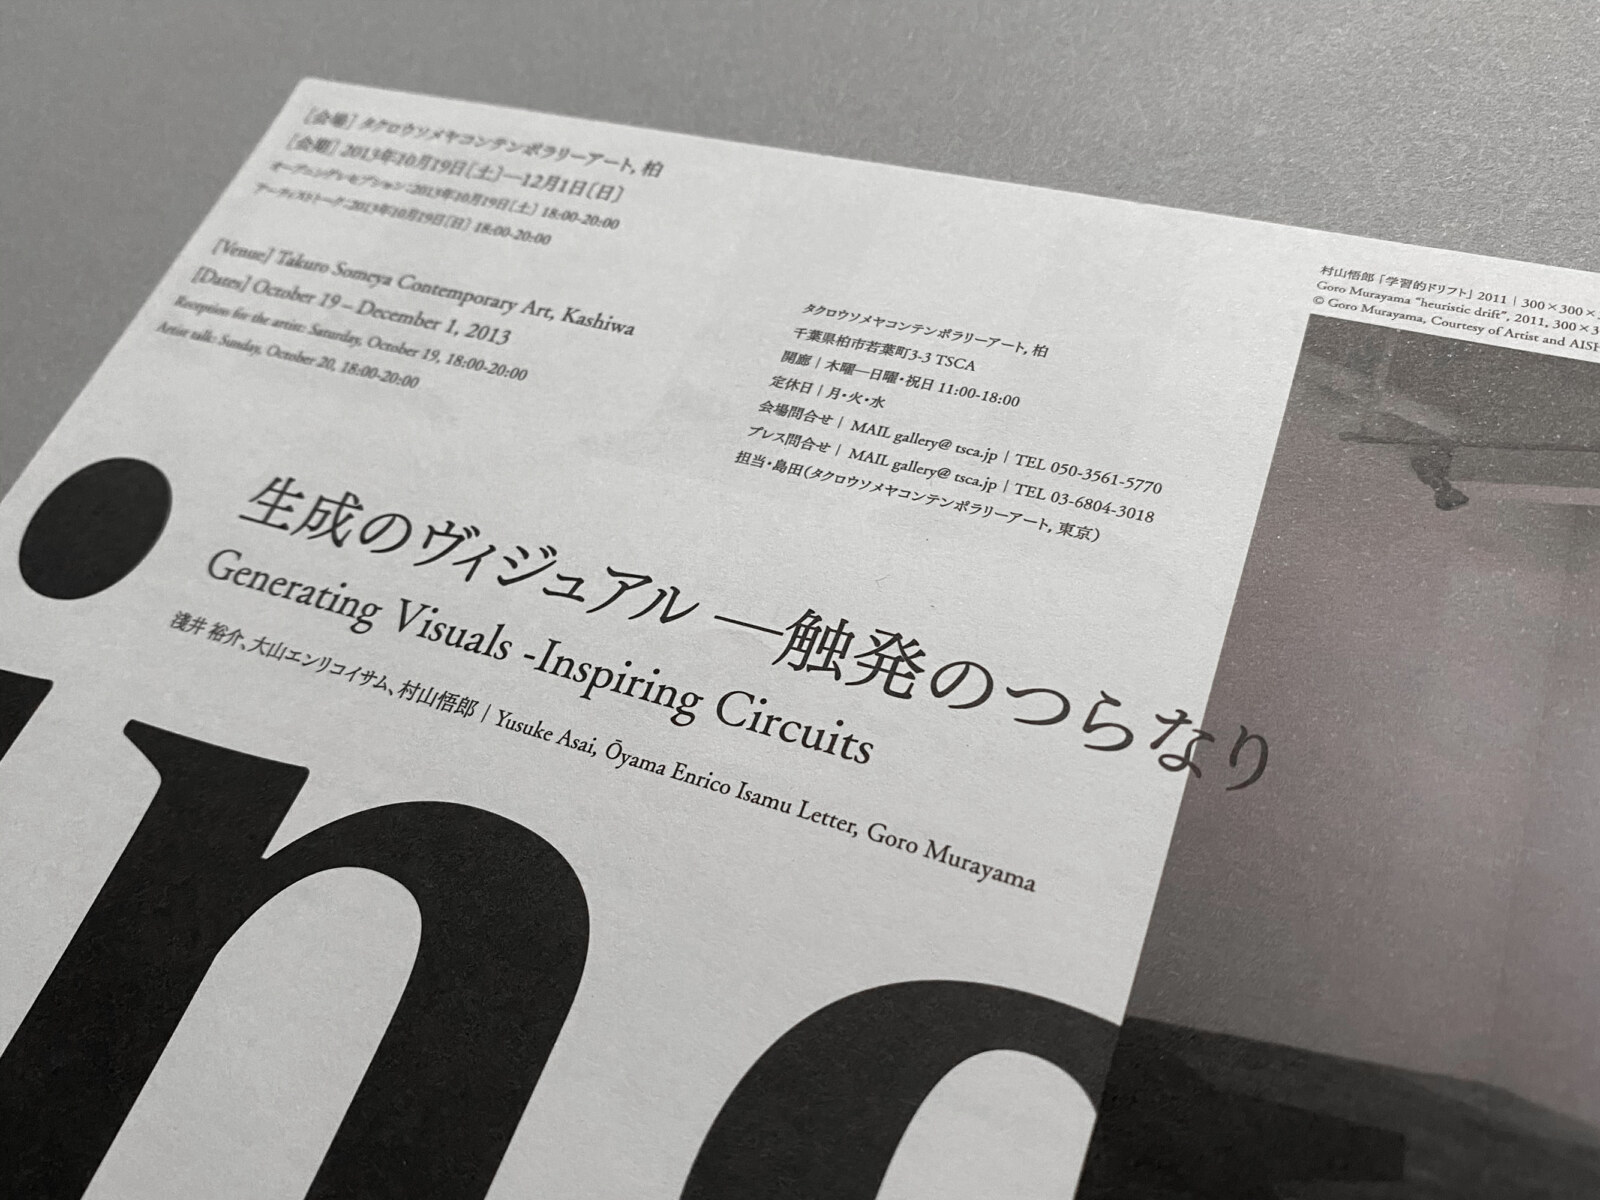 ［会場］タクロウソメヤコンテンポラリーアート, 柏
［会期］2013年10月19日〔土〕—12月1日〔日〕
オープニングレセプション：2013年10月19日〔土〕 18:00-20:00
アーティストトーク：2013年10月19日〔日〕 18:00-20:00
[Venue] Takuro Someya Contemporary Art, Kashiwa
[Dates] October 19 – December 1, 2013
Reception for the artist: Saturday, October 19, 18:00-20:00
Artist talk: Sunday, October 20, 18:00-20:00
タクロウソメヤコンテンポラリーアート, 柏
千葉県柏市若葉町3-3 TSCA
開廊 | 木曜—日曜・祝日 11:00-18:00
定休日 | 月・火・水
会場問合せ | MAIL gallery@ tsca.jp | TEL 050-3561-5770
プレス問合せ | MAIL gallery@ tsca.jp | TEL 03-6804-3018
担当・島田（タクロウソメヤコンテンポラリーアート, 東京）
村山悟郎「学習的ドリフト」2011 | 300×300×
Goro Murayama “heuristic drift”, 2011, 300×3
© Goro Murayama, Courtesy of Artist and AISH
生成のヴィジュアル —触発のつらなり
Generating Visuals -Inspiring Circuits
淺井 裕介、大山エンリコイサム、村山悟郎 | Yusuke Asai, Ōyama Enrico Isamu Letter, Goro Murayama
in